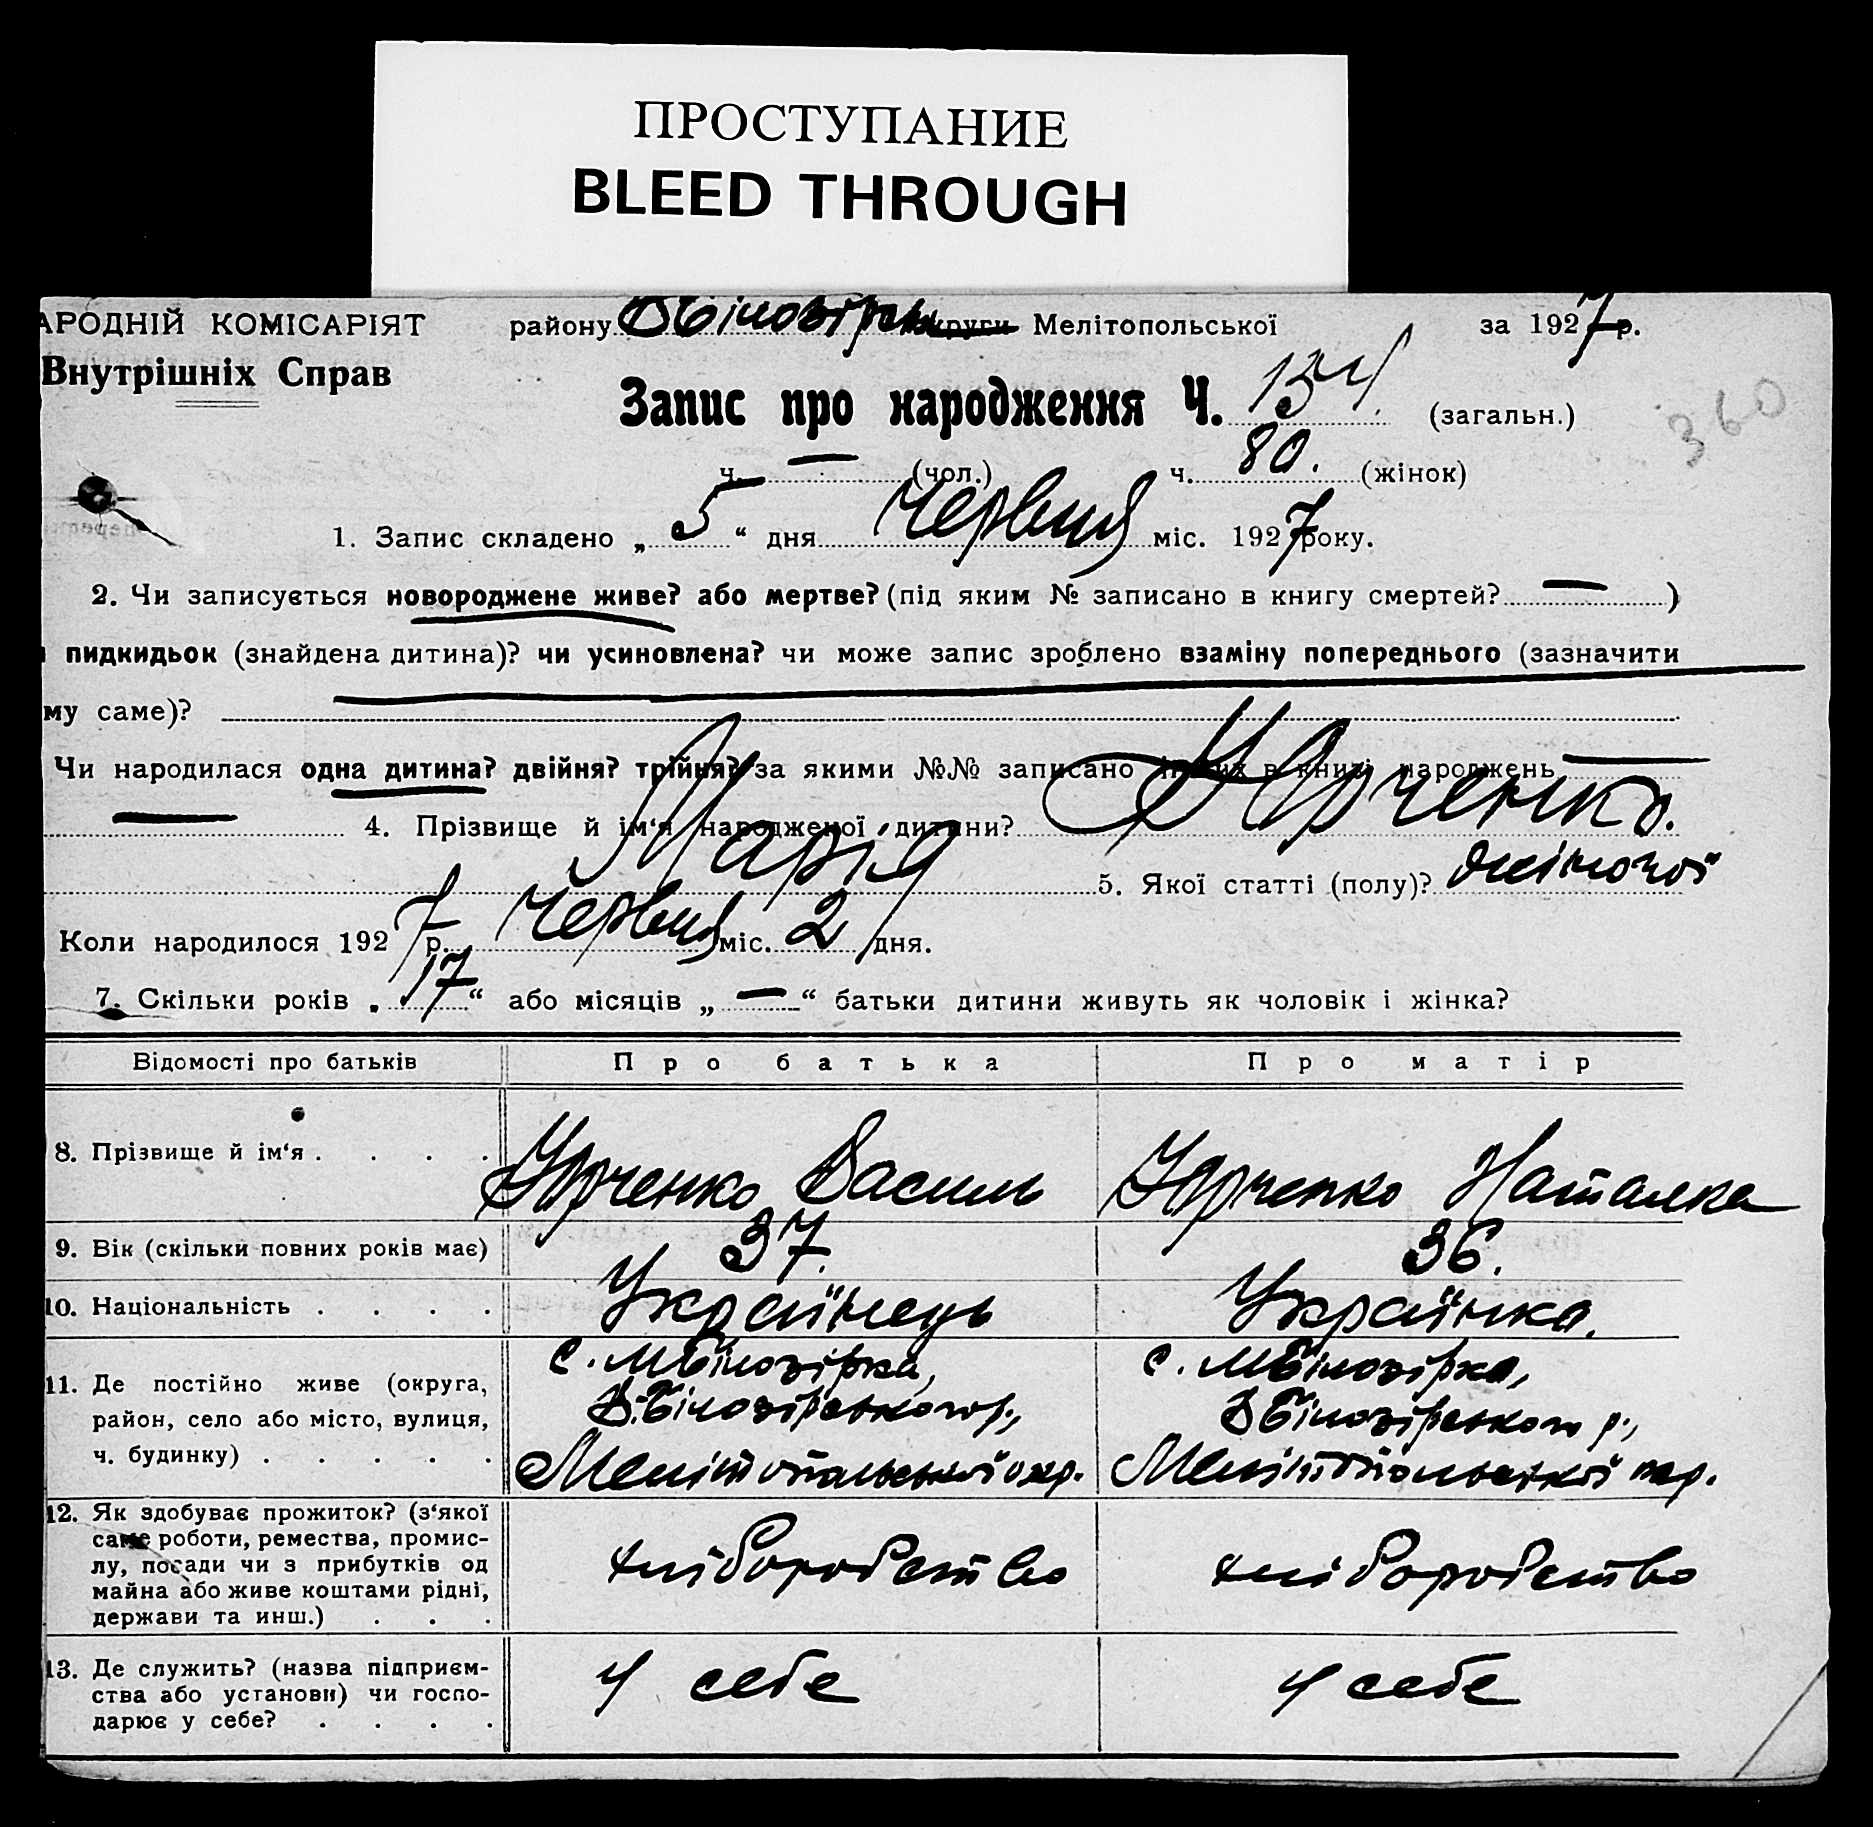 ПРОСТУПАНИЕ
BLEED THROUGH
АРОДНІЙ КОМІСАРІЯТ району округи Мелітопольської за 1927 р.
Внутрішніх Справ
Запис про народження Ч. 154 (загальн.)
360
ч. — (чол.) ч. 80. (жінок)
1. Запис складено „ 5 “ дня Червня міс. 1927 року.
2. Чи записується новороджене живе? або мертве? (під яким № записано в книгу смертей? — )
пидкидьок (знайдена дитина)? чи усиновлена? чи може запис зроблено взаміну попереднього (зазначити
му саме)?
Чи народилася одна дитина? двійня? трійня? за якими №№ записано інших в книзі народжень —
— 4. Прізвище й ім‘я народженої дитини? Юрченко.
Марія 5. Якої статті (полу)? жіночої
Коли народилося 1927 р. Червня міс. 2 дня.
7. Скільки років „ 17 “ або місяців „ — “ батьки дитини живуть як чоловік і жінка?
Відомості про батьків Про батька Про матір
8. Прізвище й ім‘я . . . . Юрченко Василь Юрченко Наталка
9. Вік (скільки повних років має) 37. 36.
10. Національність . . . . Українець Українка.
11. Де постійно живе (округа, с. МБілозірка, с. МБілозірка,
район, село або місто, вулиця, В.Білозірського р., ВБілозірського р.,
ч. будинку) . . . . . Мелітопольської окр. Мелітопольської окр.
12. Як здобуває прожиток? (з‘якої
саме роботи, ремества, промис-
лу, посади чи з прибутків од хліборобство хліборобство
майна або живе коштами рідні,
держави та инш.) . . .
13. Де служить? (назва підприєм-
ства або установи) чи госпо- у себе у себе
дарює у себе? . . . .